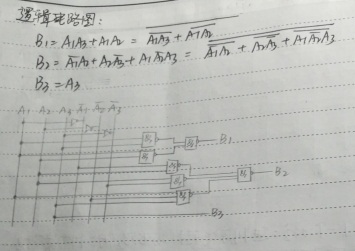 逻辑电路图:
B₁ = A₁A₃ + A₁A₂ = \overline{\overline{A₁A₃} + \overline{A₁A₂}}
B₂ = \overline{A₁}A₂ + A₂\overline{A₃} + A₁\overline{A₂}A₃ = \overline{\overline{\overline{A₁}A₂} + \overline{A₂\overline{A₃}} + \overline{A₁\overline{A₂}A₃}}
B₃ = A₃
A₁ A₂ A₃ \overline{A₁} \overline{A₂} \overline{A₃}
B₁
B₂
B₃